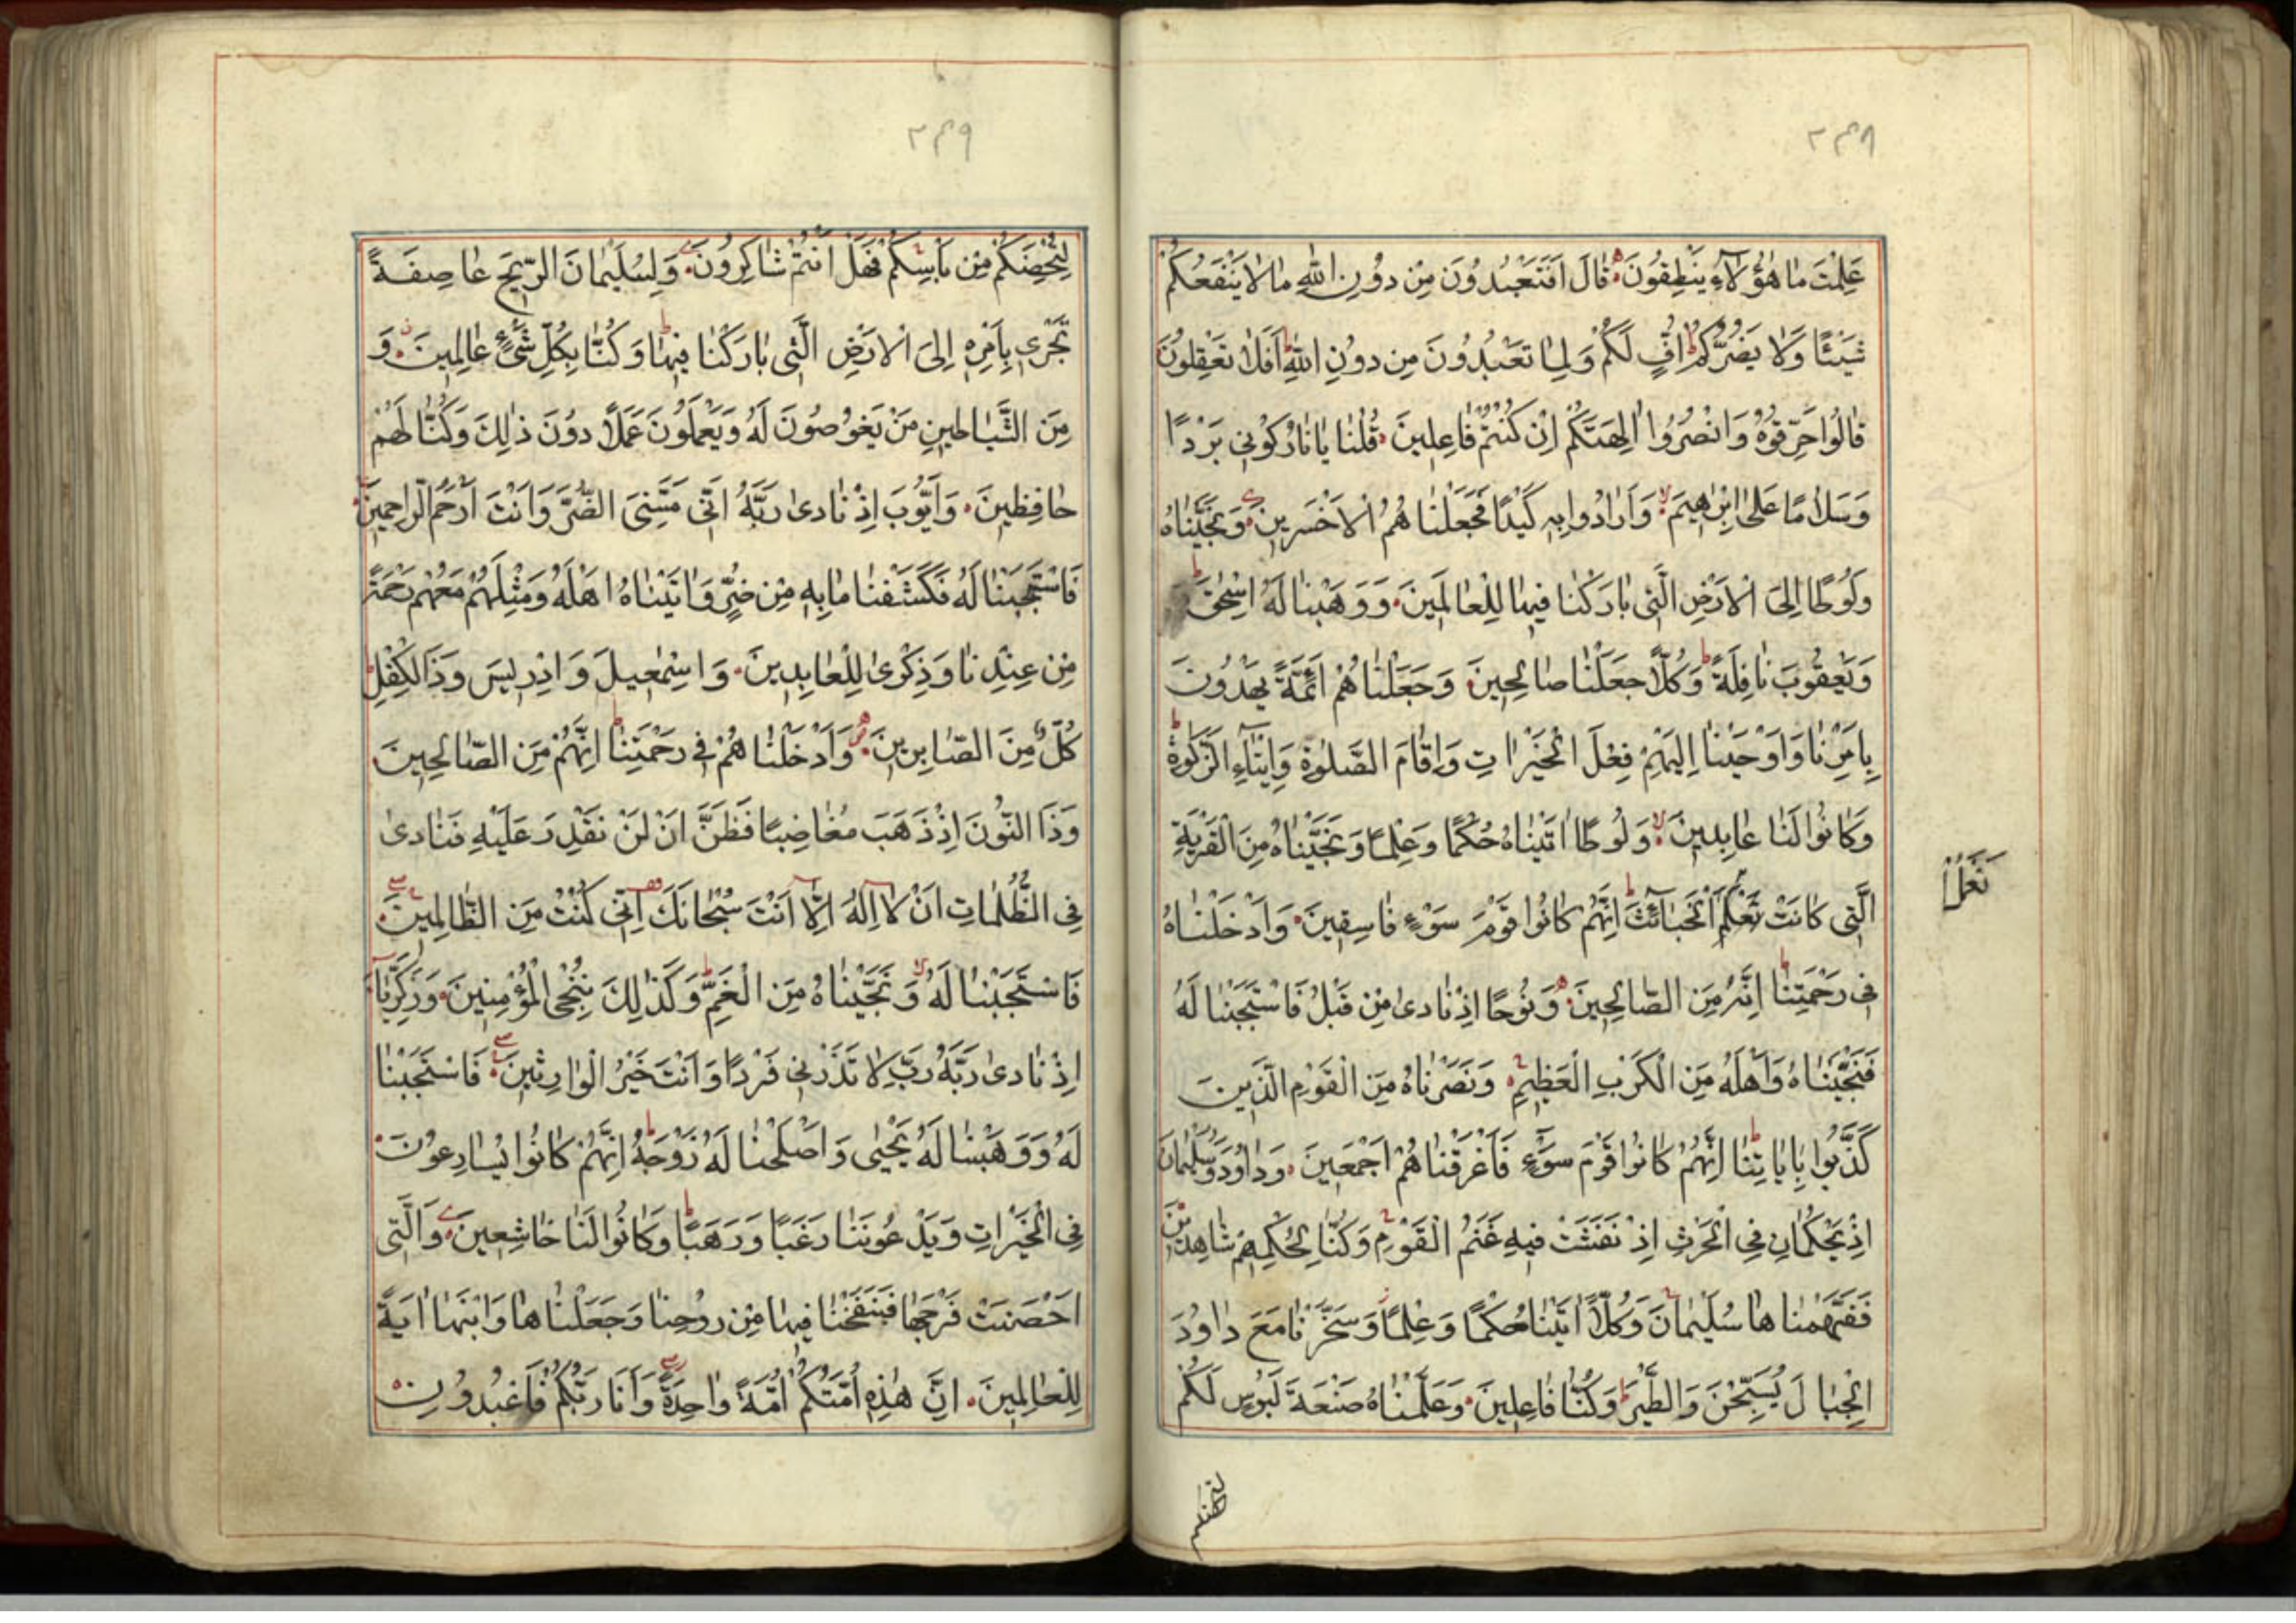 ٢٣٨
عَلِمْتَ مَا هٰؤُلَاءِ يَنْطِقُونَ قَالَ اَفَتَعْبُدُونَ مِنْ دُونِ اللّٰهِ مَا لَا يَنْفَعُكُمْ
شَيْئًا وَلَا يَضُرُّكُمْ اُفٍّ لَكُمْ وَلِمَا تَعْبُدُونَ مِنْ دُونِ اللّٰهِ اَفَلَا تَعْقِلُونَ
قَالُوا حَرِّقُوهُ وَانْصُرُوا اٰلِهَتَكُمْ اِنْ كُنْتُمْ فَاعِلِينَ قُلْنَا يَا نَارُ كُونِي بَرْدًا
وَسَلَامًا عَلٰى اِبْرٰهِيمَ وَاَرَادُوا بِهِ كَيْدًا فَجَعَلْنَا هُمُ الْاَخْسَرِينَ وَنَجَّيْنَاهُ
وَلُوطًا اِلَى الْاَرْضِ الَّتِي بَارَكْنَا فِيهَا لِلْعَالَمِينَ وَوَهَبْنَا لَهُ اِسْحٰقَ
وَيَعْقُوبَ نَافِلَةً وَكُلًّا جَعَلْنَا صَالِحِينَ وَجَعَلْنَا هُمْ اَئِمَّةً يَهْدُونَ
بِاَمْرِنَا وَاَوْحَيْنَا اِلَيْهِمْ فِعْلَ الْخَيْرَاتِ وَاِقَامَ الصَّلٰوةِ وَاِيتَاءَ الزَّكٰوةِ
وَكَانُوا لَنَا عَابِدِينَ وَلُوطًا اٰتَيْنَاهُ حُكْمًا وَعِلْمًا وَنَجَّيْنَاهُ مِنَ الْقَرْيَةِ
الَّتِي كَانَتْ تَعْمَلُ الْخَبَائِثَ اِنَّهُمْ كَانُوا قَوْمَ سَوْءٍ فَاسِقِينَ وَاَدْخَلْنَاهُ
تَعْمَلُ
فِي رَحْمَتِنَا اِنَّهُ مِنَ الصَّالِحِينَ وَنُوحًا اِذْ نَادٰى مِنْ قَبْلُ فَاسْتَجَبْنَا لَهُ
فَنَجَّيْنَاهُ وَاَهْلَهُ مِنَ الْكَرْبِ الْعَظِيمِ وَنَصَرْنَاهُ مِنَ الْقَوْمِ الَّذِينَ
كَذَّبُوا بِاٰيَاتِنَا اِنَّهُمْ كَانُوا قَوْمَ سَوْءٍ فَاَغْرَقْنَا هُمْ اَجْمَعِينَ وَدَاوُدَ وَسُلَيْمَانَ
اِذْ يَحْكُمَانِ فِي الْحَرْثِ اِذْ نَفَشَتْ فِيهِ غَنَمُ الْقَوْمِ وَكُنَّا لِحُكْمِهِمْ شَاهِدِينَ
فَفَهَّمْنَا هَا سُلَيْمَانَ وَكُلًّا اٰتَيْنَا حُكْمًا وَعِلْمًا وَسَخَّرْنَا مَعَ دَاوُدَ
الْجِبَالَ يُسَبِّحْنَ وَالطَّيْرَ وَكُنَّا فَاعِلِينَ وَعَلَّمْنَاهُ صَنْعَةَ لَبُوسٍ لَكُمْ
لتحصنكم
٢٣٩
لِتُحْصِنَكُمْ مِنْ بَاْسِكُمْ فَهَلْ اَنْتُمْ شَاكِرُونَ وَلِسُلَيْمَانَ الرِّيحَ عَاصِفَةً
تَجْرِي بِاَمْرِهِ اِلَى الْاَرْضِ الَّتِي بَارَكْنَا فِيهَا وَكُنَّا بِكُلِّ شَيْءٍ عَالِمِينَ وَ
مِنَ الشَّيَاطِينِ مَنْ يَغُوصُونَ لَهُ وَيَعْمَلُونَ عَمَلًا دُونَ ذٰلِكَ وَكُنَّا لَهُمْ
حَافِظِينَ وَاَيُّوبَ اِذْ نَادٰى رَبَّهُ اَنِّي مَسَّنِيَ الضُّرُّ وَاَنْتَ اَرْحَمُ الرَّاحِمِينَ
فَاسْتَجَبْنَا لَهُ فَكَشَفْنَا مَا بِهِ مِنْ ضُرٍّ وَاٰتَيْنَاهُ اَهْلَهُ وَمِثْلَهُمْ مَعَهُمْ رَحْمَةً
مِنْ عِنْدِنَا وَذِكْرٰى لِلْعَابِدِينَ وَاِسْمٰعِيلَ وَاِدْرِيسَ وَذَا الْكِفْلِ
كُلٌّ مِنَ الصَّابِرِينَ وَاَدْخَلْنَا هُمْ فِي رَحْمَتِنَا اِنَّهُمْ مِنَ الصَّالِحِينَ
وَذَا النُّونَ اِذْ ذَهَبَ مُغَاضِبًا فَظَنَّ اَنْ لَنْ نَقْدِرَ عَلَيْهِ فَنَادٰى
فِي الظُّلُمَاتِ اَنْ لَا اِلٰهَ اِلَّا اَنْتَ سُبْحَانَكَ اِنِّي كُنْتُ مِنَ الظَّالِمِينَ
فَاسْتَجَبْنَا لَهُ وَنَجَّيْنَاهُ مِنَ الْغَمِّ وَكَذٰلِكَ نُنْجِي الْمُؤْمِنِينَ وَزَكَرِيَّا
اِذْ نَادٰى رَبَّهُ رَبِّ لَا تَذَرْنِي فَرْدًا وَاَنْتَ خَيْرُ الْوَارِثِينَ فَاسْتَجَبْنَا
لَهُ وَوَهَبْنَا لَهُ يَحْيٰى وَاَصْلَحْنَا لَهُ زَوْجَهُ اِنَّهُمْ كَانُوا يُسَارِعُونَ
فِي الْخَيْرَاتِ وَيَدْعُونَنَا رَغَبًا وَرَهَبًا وَكَانُوا لَنَا خَاشِعِينَ وَالَّتِي
اَحْصَنَتْ فَرْجَهَا فَنَفَخْنَا فِيهَا مِنْ رُوحِنَا وَجَعَلْنَا هَا وَابْنَهَا اٰيَةً
لِلْعَالَمِينَ اِنَّ هٰذِهِ اُمَّتُكُمْ اُمَّةً وَاحِدَةً وَاَنَا رَبُّكُمْ فَاعْبُدُونِ